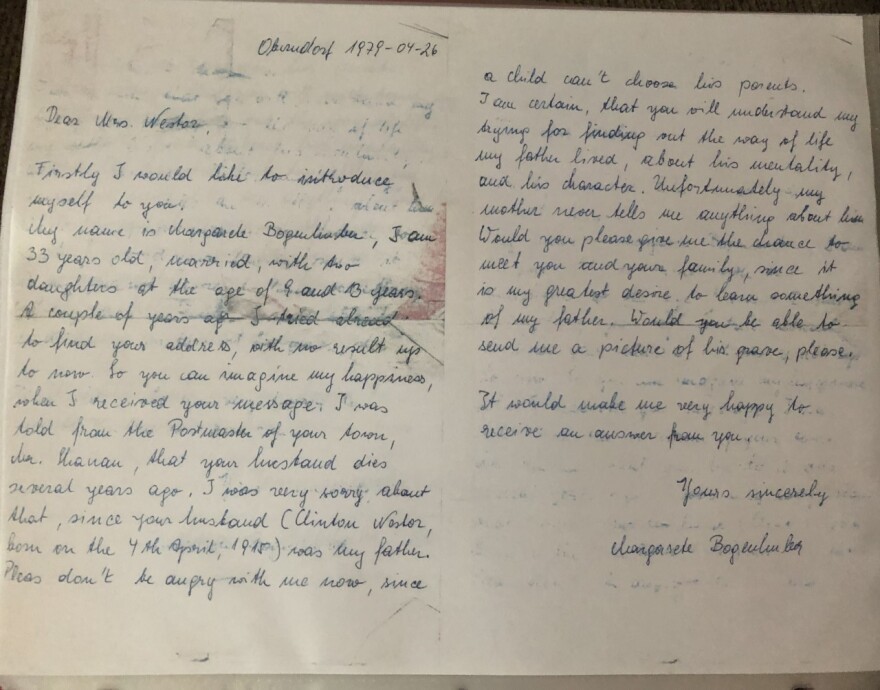 Oberndorf 1979-04-26
Dear Mrs. Nestor,
Firstly I would like to introduce
myself to you.
My name is Margarete Bogenhuber, I am
33 years old, married, with two
daughters at the age of 9 and 13 years.
A couple of years ago I tried alread
to find your address, with no result up
to now. So you can imagine my happiness,
when I received your message. I was
told from the Postmaster of your town,
Mr. Hanan, that your husband dies
several years ago. I was very sorry about
that, since your husband (Clinton Nestor,
born on the 4th April, 1915) was my father.
Pleas don't be angry with me now, since
a child can't choose his parents.
I am certain, that you will understand my
trying for finding out the way of life
my father lived, about his mentality,
and his character. Unfortunately my
mother never tells me anything about him
Would you please give me the chance to
meet you and your family, since it
is my greatest desire to learn something
of my father. Would you be able to
send me a picture of his grave, please,
It would make me very happy to
receive an answer from you.
Yours sincerely
Margarete Bogenhuber